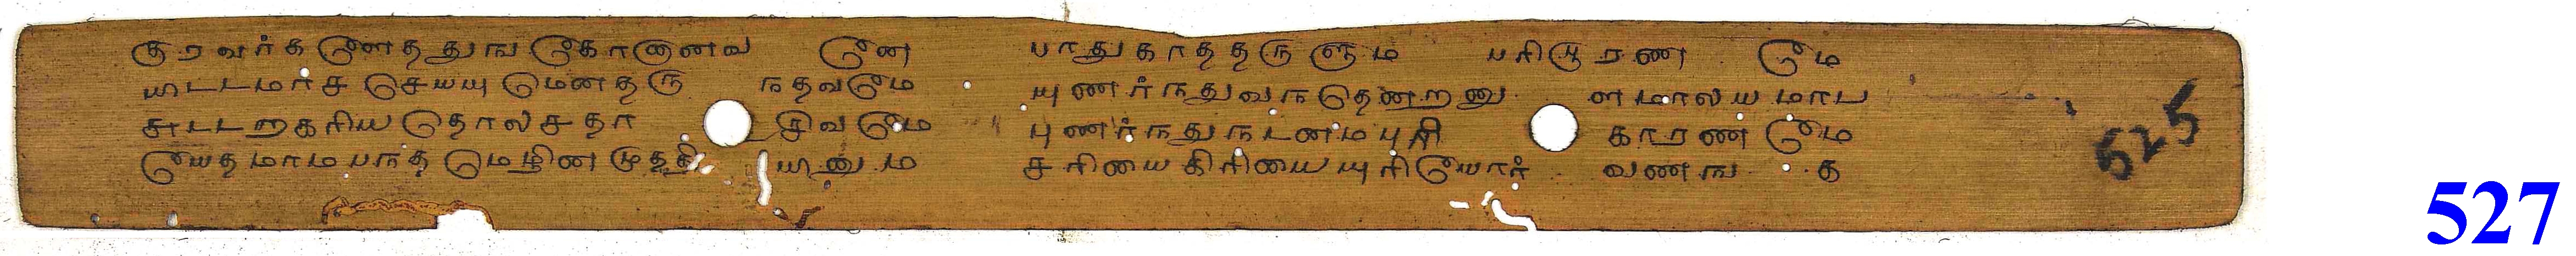 குரவர்க ளனைத்துங கோனவ னே பாதுகாததருளும பரிபூரண மே
யிடடமாச செயயு மெனதரு நதவமே யுணர்நதுவநதெனறனு ளமாலயமாப
சுடடறகரிய தொலசதா சிவமே புணர்நதுநடனமபுரி காரண மே
யேதமாமபநத மெழின முததி யினும சரியைகிரியையுரியோர் வணஙக
525
527